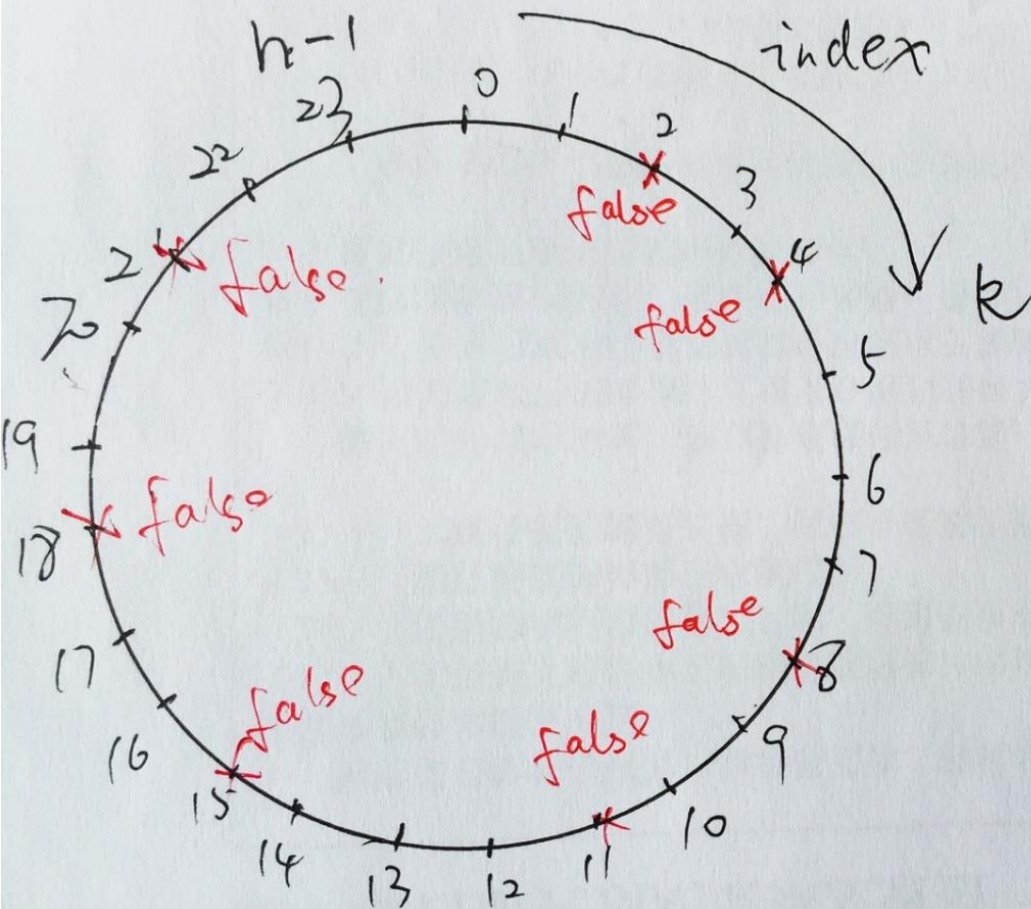 n-1
index
k
0
1
2
false
3
4
false
5
6
7
8
false
9
10
11
false
12
13
14
15
false
16
17
18
false
19
20
21
false
22
23